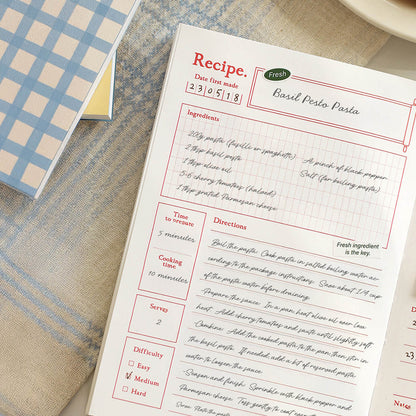 Recipe.
Date first made
230518
Fresh
Basil Pesto Pasta
Ingredients
200g pasta (fusille or spaghetti)
2 tbsp basil pesto
1 tbsp olive oil
5-6 cherry tomatoes (halved)
1 tbsp grated Parmesan cheese
A pinch of black pepper
Salt (for boiling pasta)
Time
to prepare
5 minutes
Cooking
time
10 minutes
Serves
2
Difficulty
Easy
Medium
Hard
Directions
Fresh ingredient
is the key.
Boil the pasta: Cook pasta in salted boiling water ac-
cording to the package instructions. Save about 1/4 cup
of the pasta water before draining.
Prepare the sauce: In a pan, heat olive oil over low
heat. Add cherry tomatoes and sauté until slightly soft.
Combine: Add the cooked pasta to the pan, then stir in
the basil pesto. If needed, add a bit of reserved pasta
water to loosen the sauce.
Season and finish: Sprinkle with black pepper and
Parmesan cheese. Toss gently to coat
Serve:
D
23
Notes